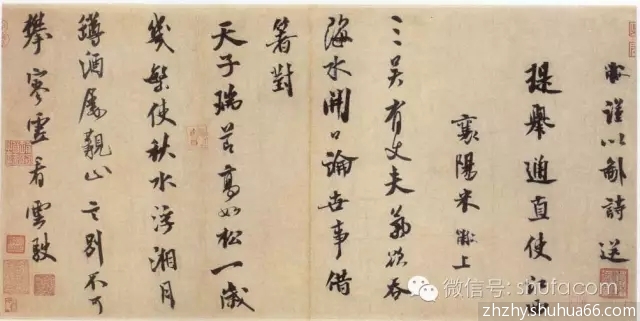 黻謹以鄙詩送
提舉通直使江西
襄陽米黻上
三吳有丈夫氣欲吞
海水開口論世事借
箸對
天子瑞節高如松一歲
幾繁使秋水浮湘月
罇酒屬親山言別不可
攀寥雲看雲駛
微信号: shufacom
zhzhyshuhua66.com